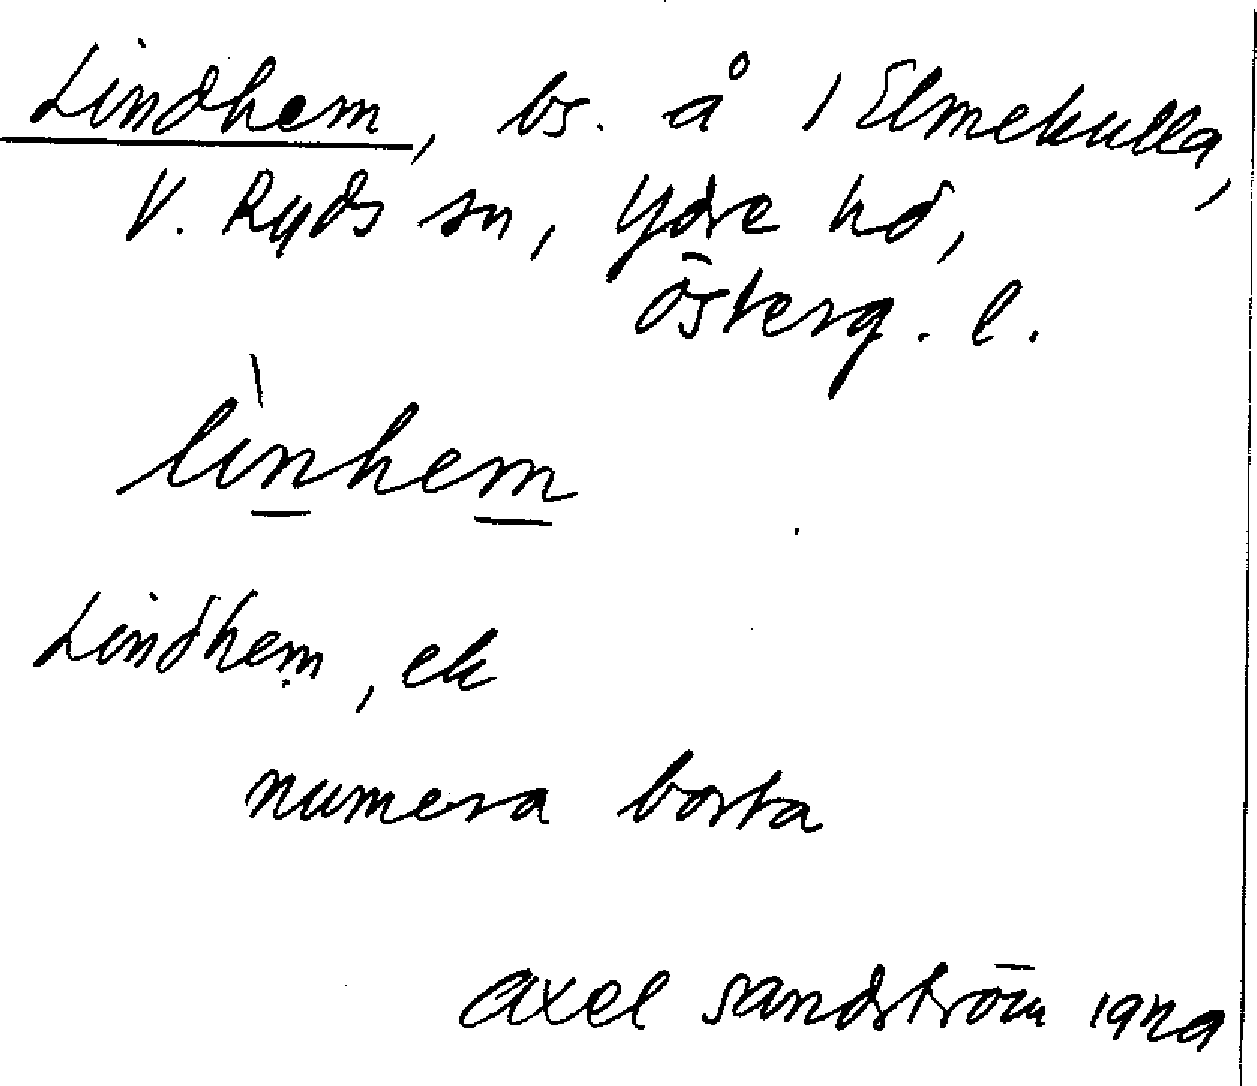 Lindhem, bs. å 1 Elmekulla,
V. Ryds sn, Ydre hd,
Österg. l.
lìnhem
Lindhem, ek
numera borta
Axel Sandström